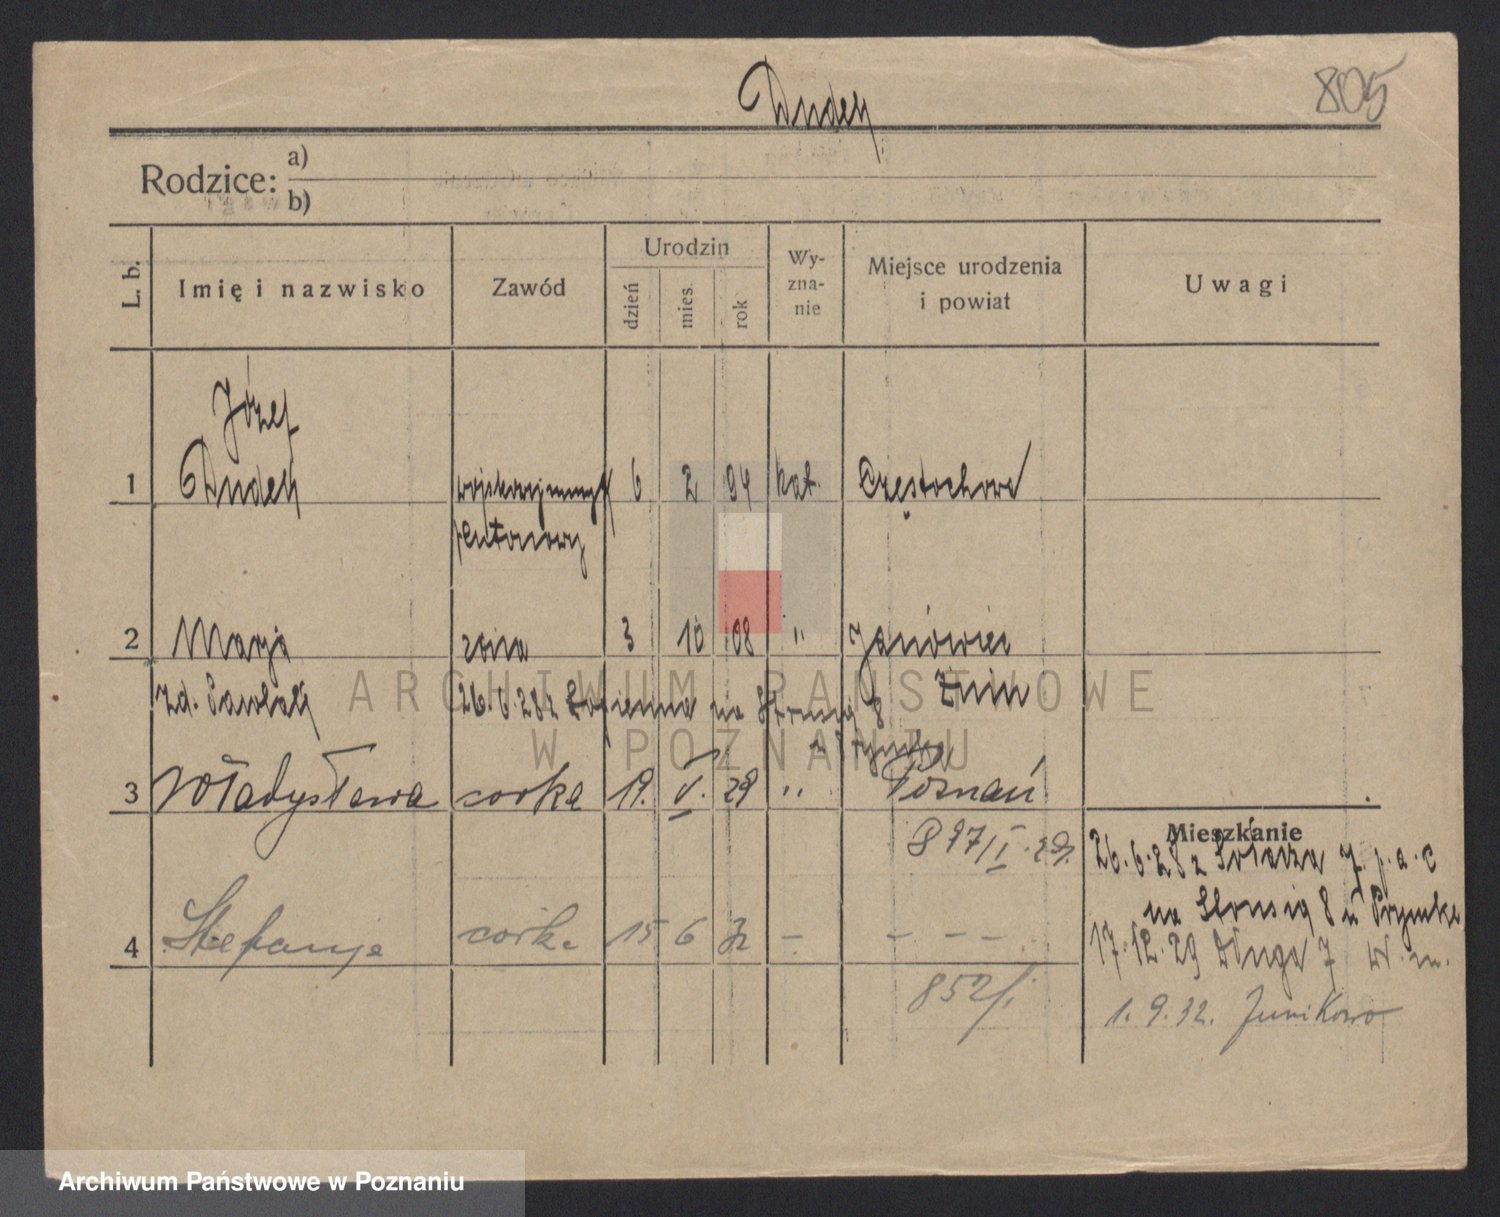 Dudek
805
Rodzice: a)
b)
L. b. Imię i nazwisko Zawód Urodzin dzień mies. rok Wy-zna-nie Miejsce urodzenia i powiat Uwagi
Józef
1 Dudek wojskowy 6 2 94 kat. Częstochowa
plutonowy
2 Marja żona 3 10 08 " Janówiec
zd. 26.6.28 z na 8 Żnin
3 Władysława córka 19. V. 29 " Poznań
Mieszkanie
26.6.28 z Sołacza
na 8
4 Stefanja córka 15 6 - - - -
17.12.29 Długa 7
852/
1.9.32. Junikowo
ARCHIWUM PAŃSTWOWE
W POZNANIU
Archiwum Państwowe w Poznaniu